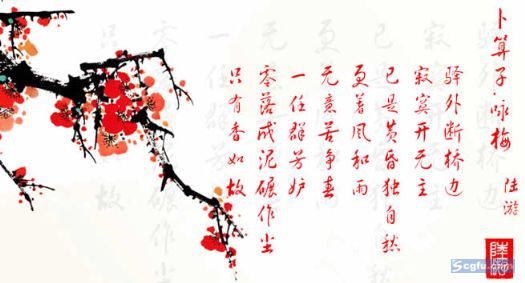 卜算子·咏梅
陆游
驿外断桥边
寂寞开无主
已是黄昏独自愁
更著风和雨
无意苦争春
一任群芳妒
零落成泥碾作尘
只有香如故
Scgfu.com